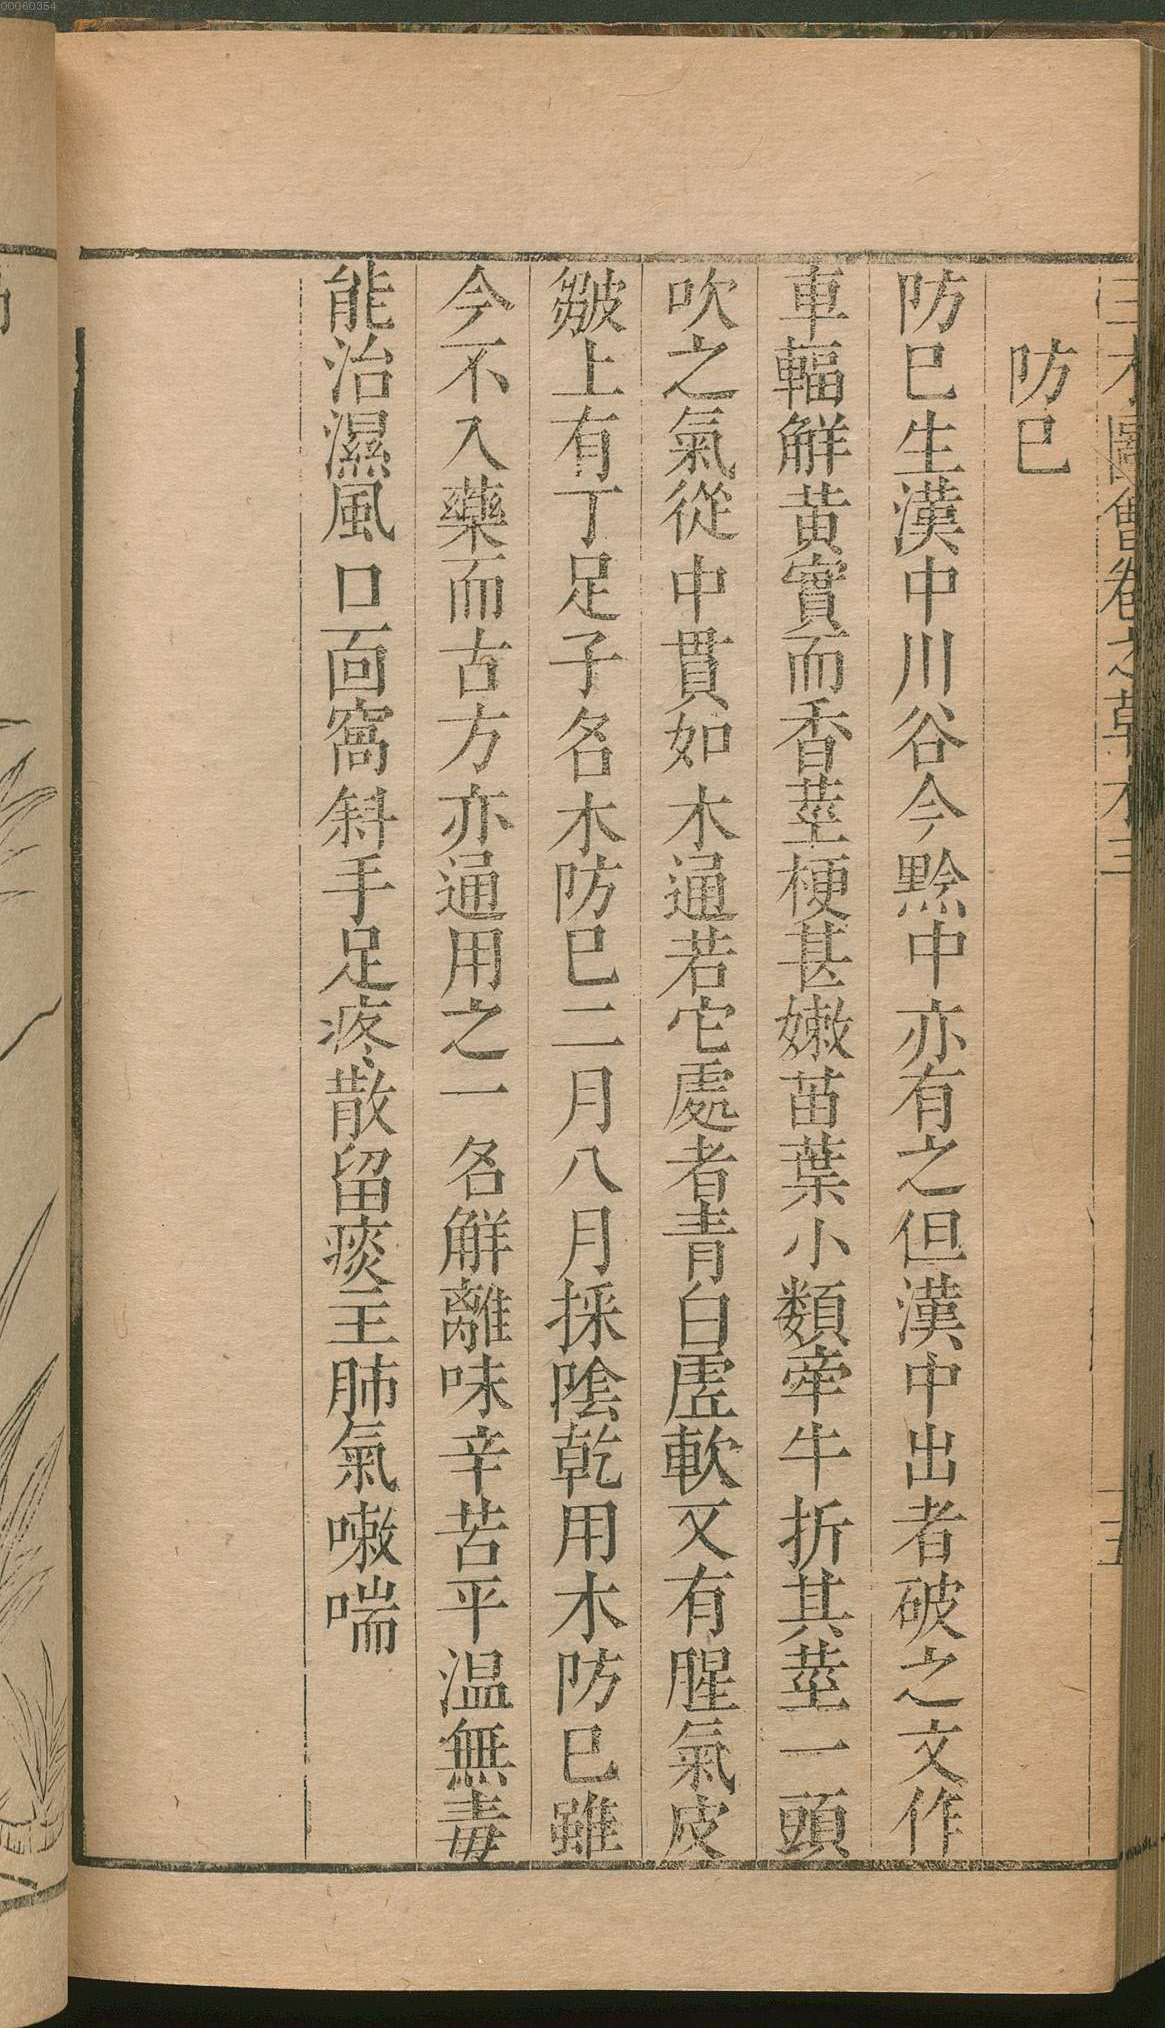 00060354
三才圖會卷之草木三
十五
防巳
防巳生漢中川谷今黔中亦有之但漢中出者破之文作
車輻解黃實而香莖梗甚嫩苗葉小類牽牛折其莖一頭
吹之氣從中貫如木通若它處者青白虛軟又有腥氣皮
皺上有丁足子名木防巳二月八月採陰乾用木防巳雖
今不入藥而古方亦通用之一名解離味辛苦平温無毒
能治濕風口面窩斜手足疼散留痰主肺氣嗽喘